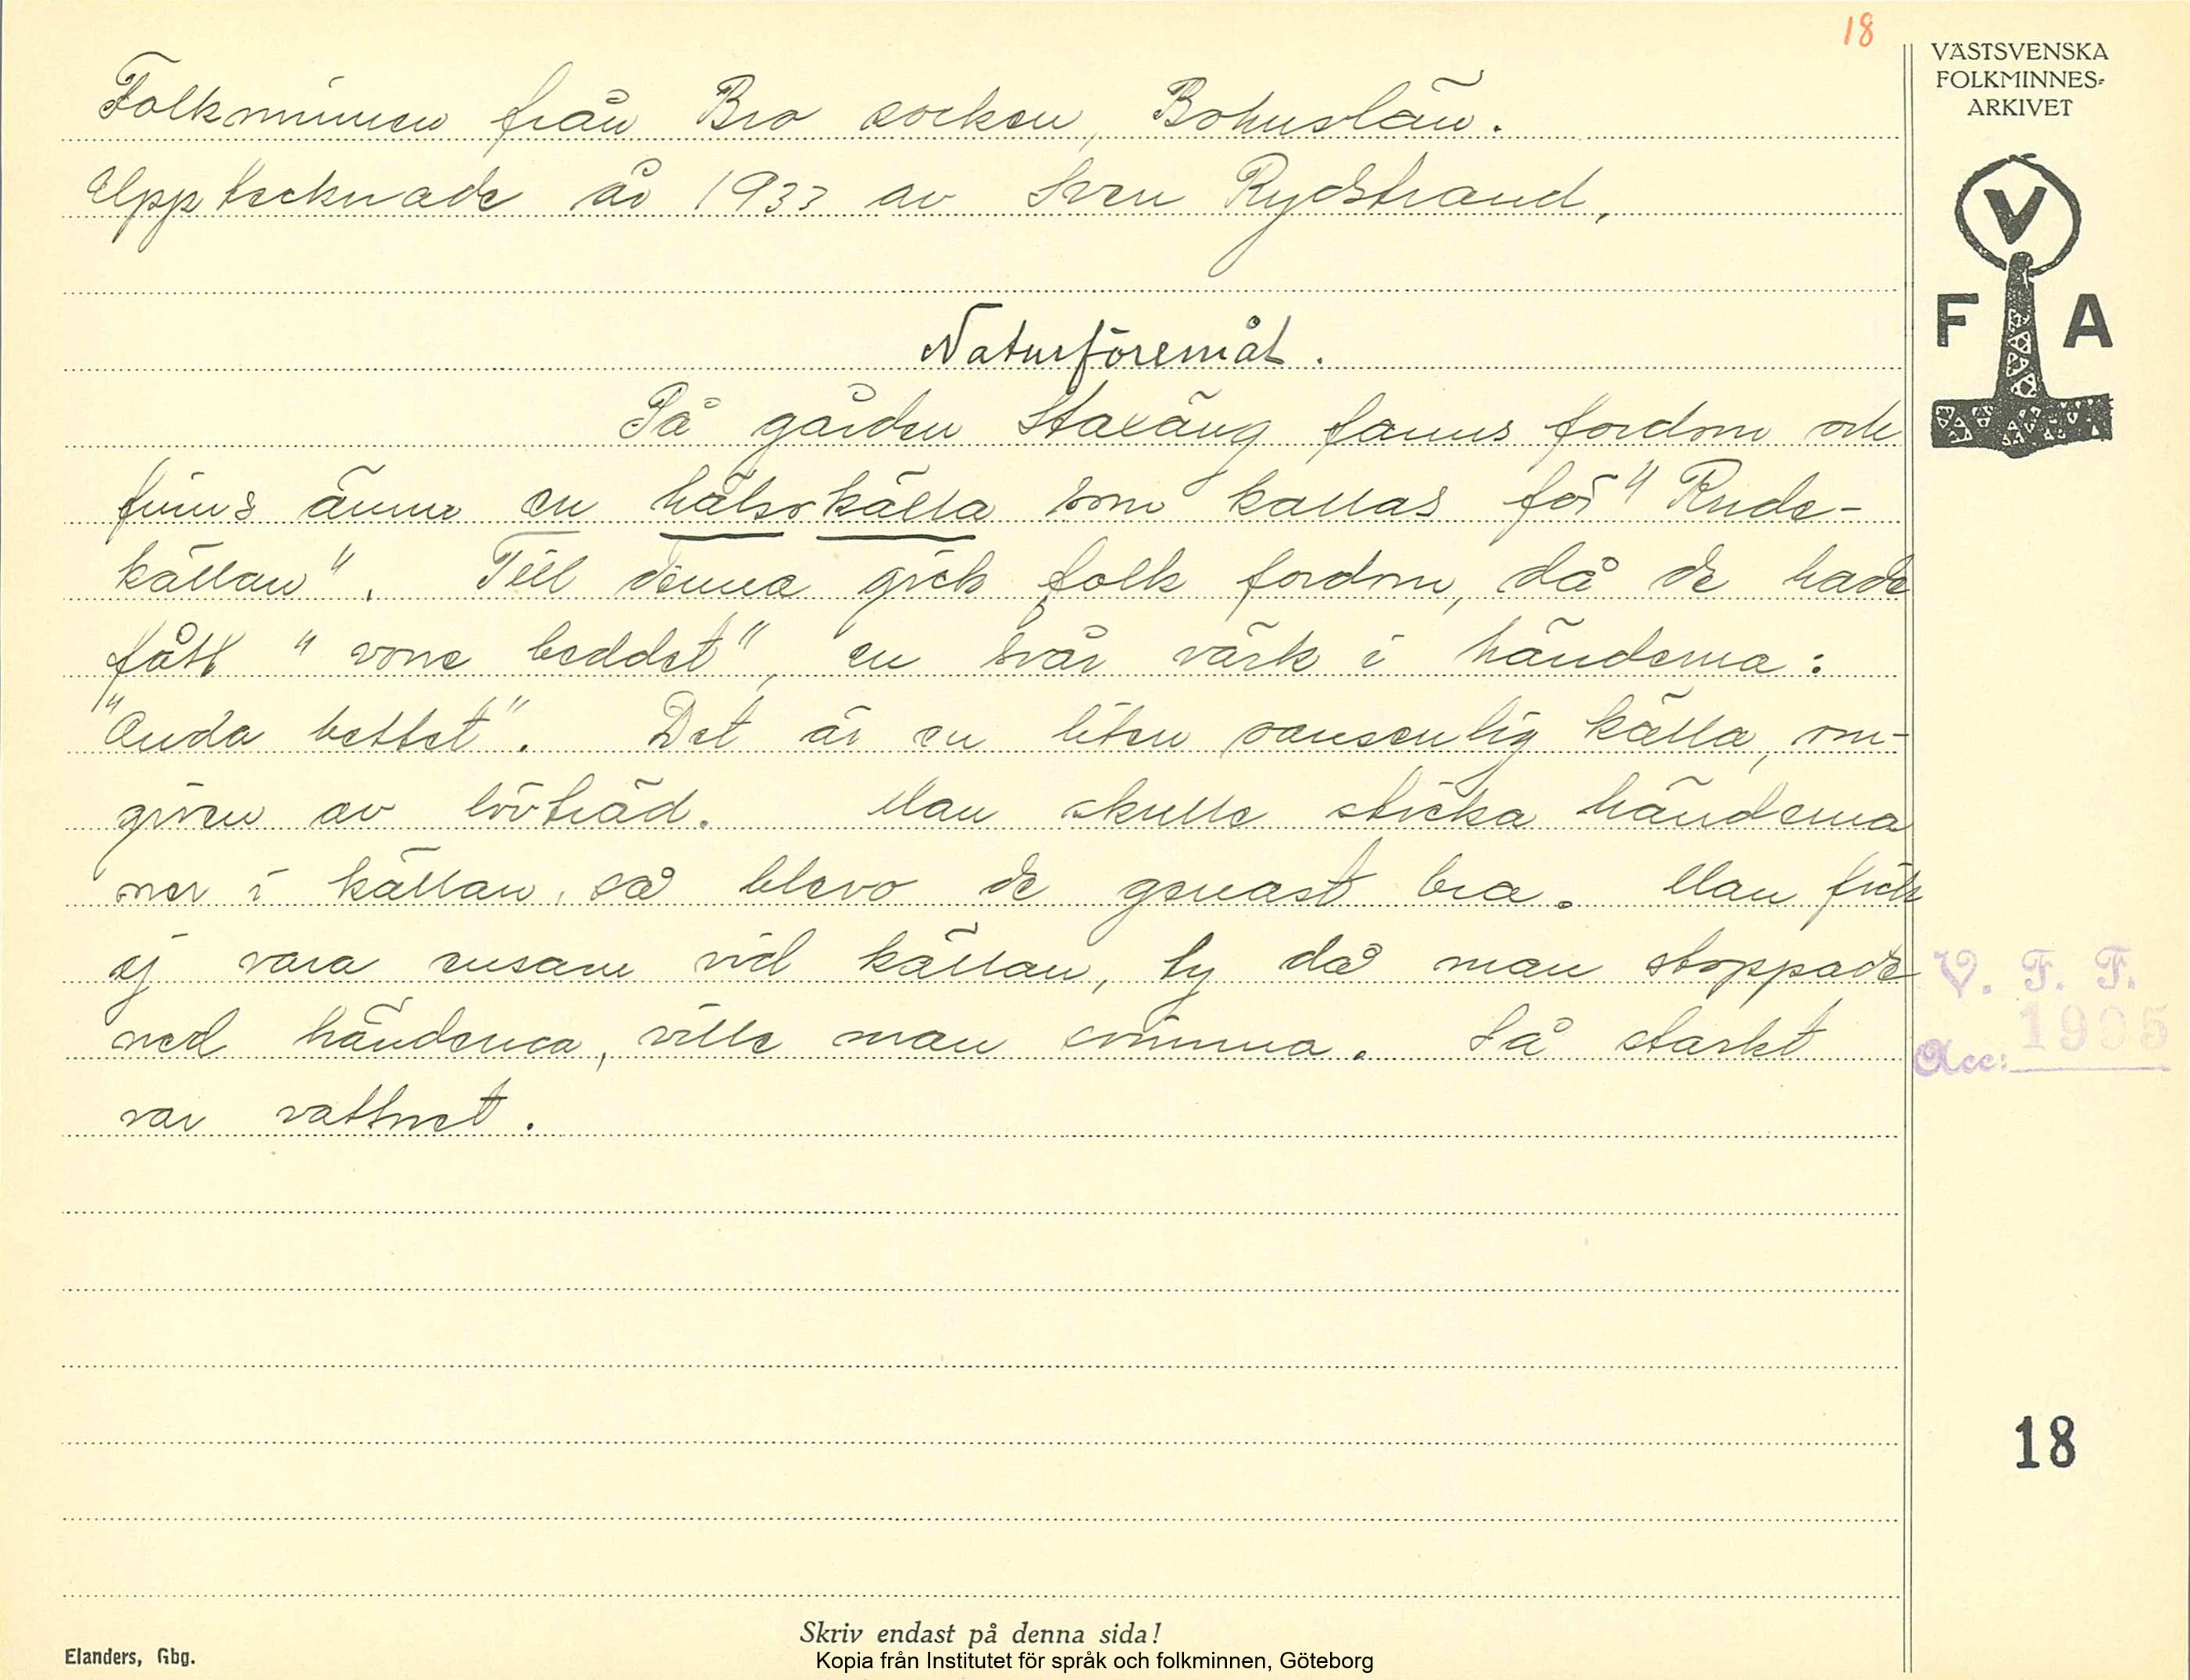 18
VÄSTSVENSKA
FOLKMINNES-
ARKIVET
V
F A
Folkminnen från Bro socken, Bohuslän.
Upptecknade år 1933 av Sven Rydstrand.
Naturföremål.
På gården Staxäng fanns fordom och
finns ännu en hälsokälla som kallas för "Rude-
källan". Till denna gick folk fordom, då de hade
fått "vone beddet", en svår värk i händerna:
"Onda bettet". Det är en liten oansenlig källa, om-
given av lövträd. Man skulle sticka händerna
ner i källan, så blevo de genast bra. Man fick
ej vara ensam vid källan, ty då man stoppade
ned händerna, ville man svimma. Så starkt
var vattnet.
V. F. F.
Acc: 1905
18
Skriv endast på denna sida!
Elanders, Gbg.
Kopia från Institutet för språk och folkminnen, Göteborg